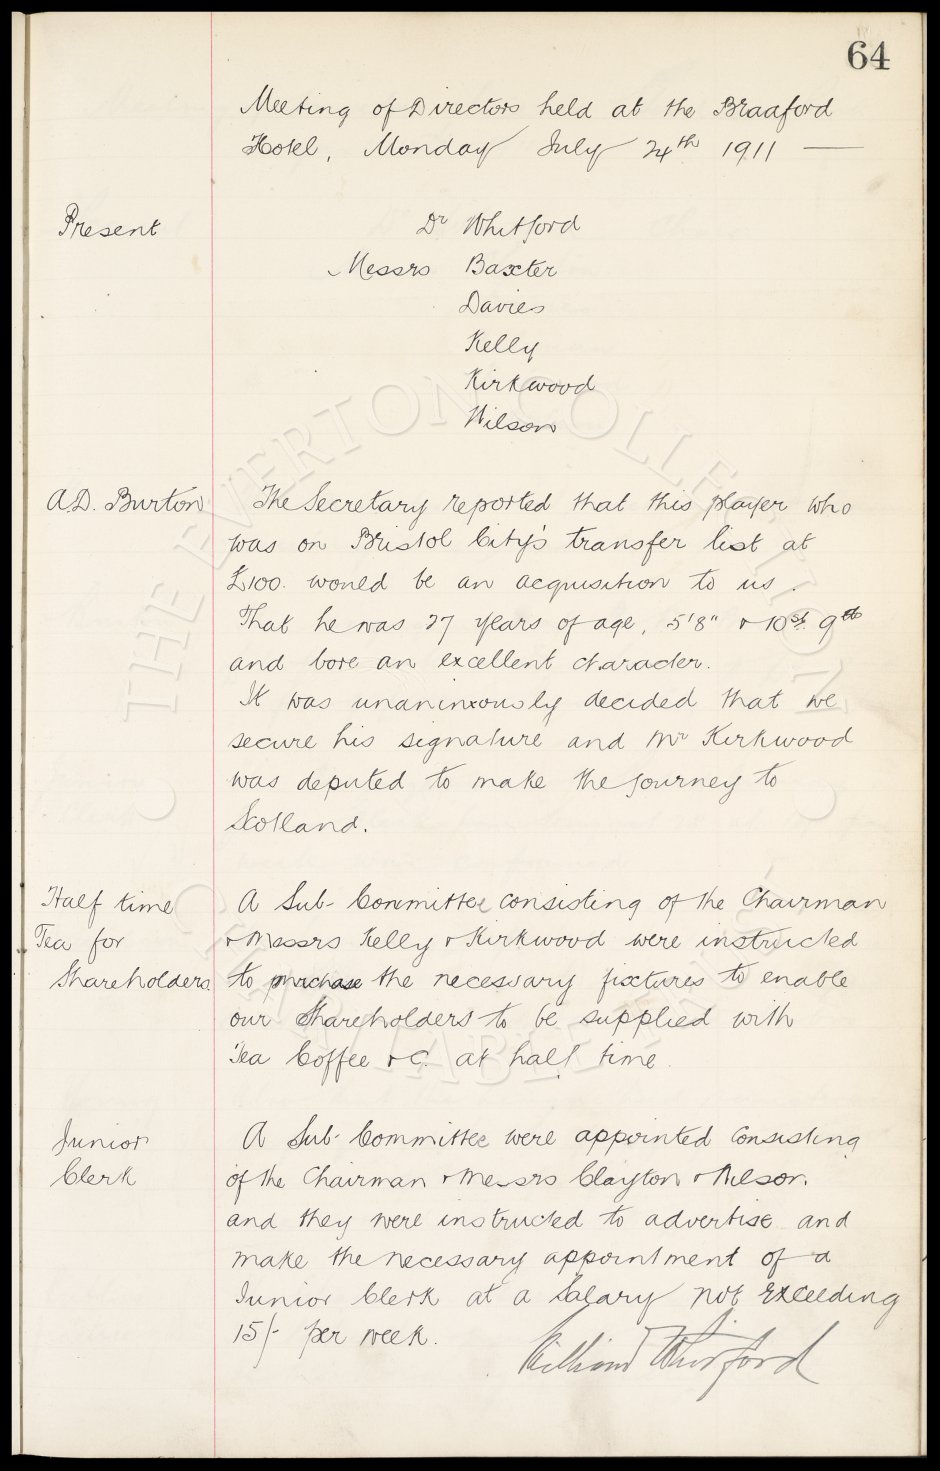 64
Meeting of Directors held at the Bradford
Hotel, Monday July 24th 1911 —
Present
Dr Whitford
Messrs Baxter
Davies
Kelly
Kirkwood
Wilson
A.D. Burton
The Secretary reported that this player who
was on Bristol City's transfer list at
£100. would be an acquisition to us.
That he was 27 years of age, 5'8" & 10st 9lb
and bore an excellent character.
It was unanimously decided that we
secure his signature and Mr Kirkwood
was deputed to make the journey to
Scotland.
Half time
Tea for
Shareholders
A Sub-Committee consisting of the Chairman
& Messrs Kelly & Kirkwood were instructed
to purchase the necessary fixtures to enable
our Shareholders to be supplied with
Tea Coffee &C. at half time.
Junior
Clerk
A Sub-Committee were appointed consisting
of the Chairman & Messrs Clayton & Wilson.
and they were instructed to advertise and
make the necessary appointment of a
Junior Clerk at a Salary not exceeding
15/- per week.
William Whitford
© THE EVERTON COLLECTION
CHARITABLE TRUST